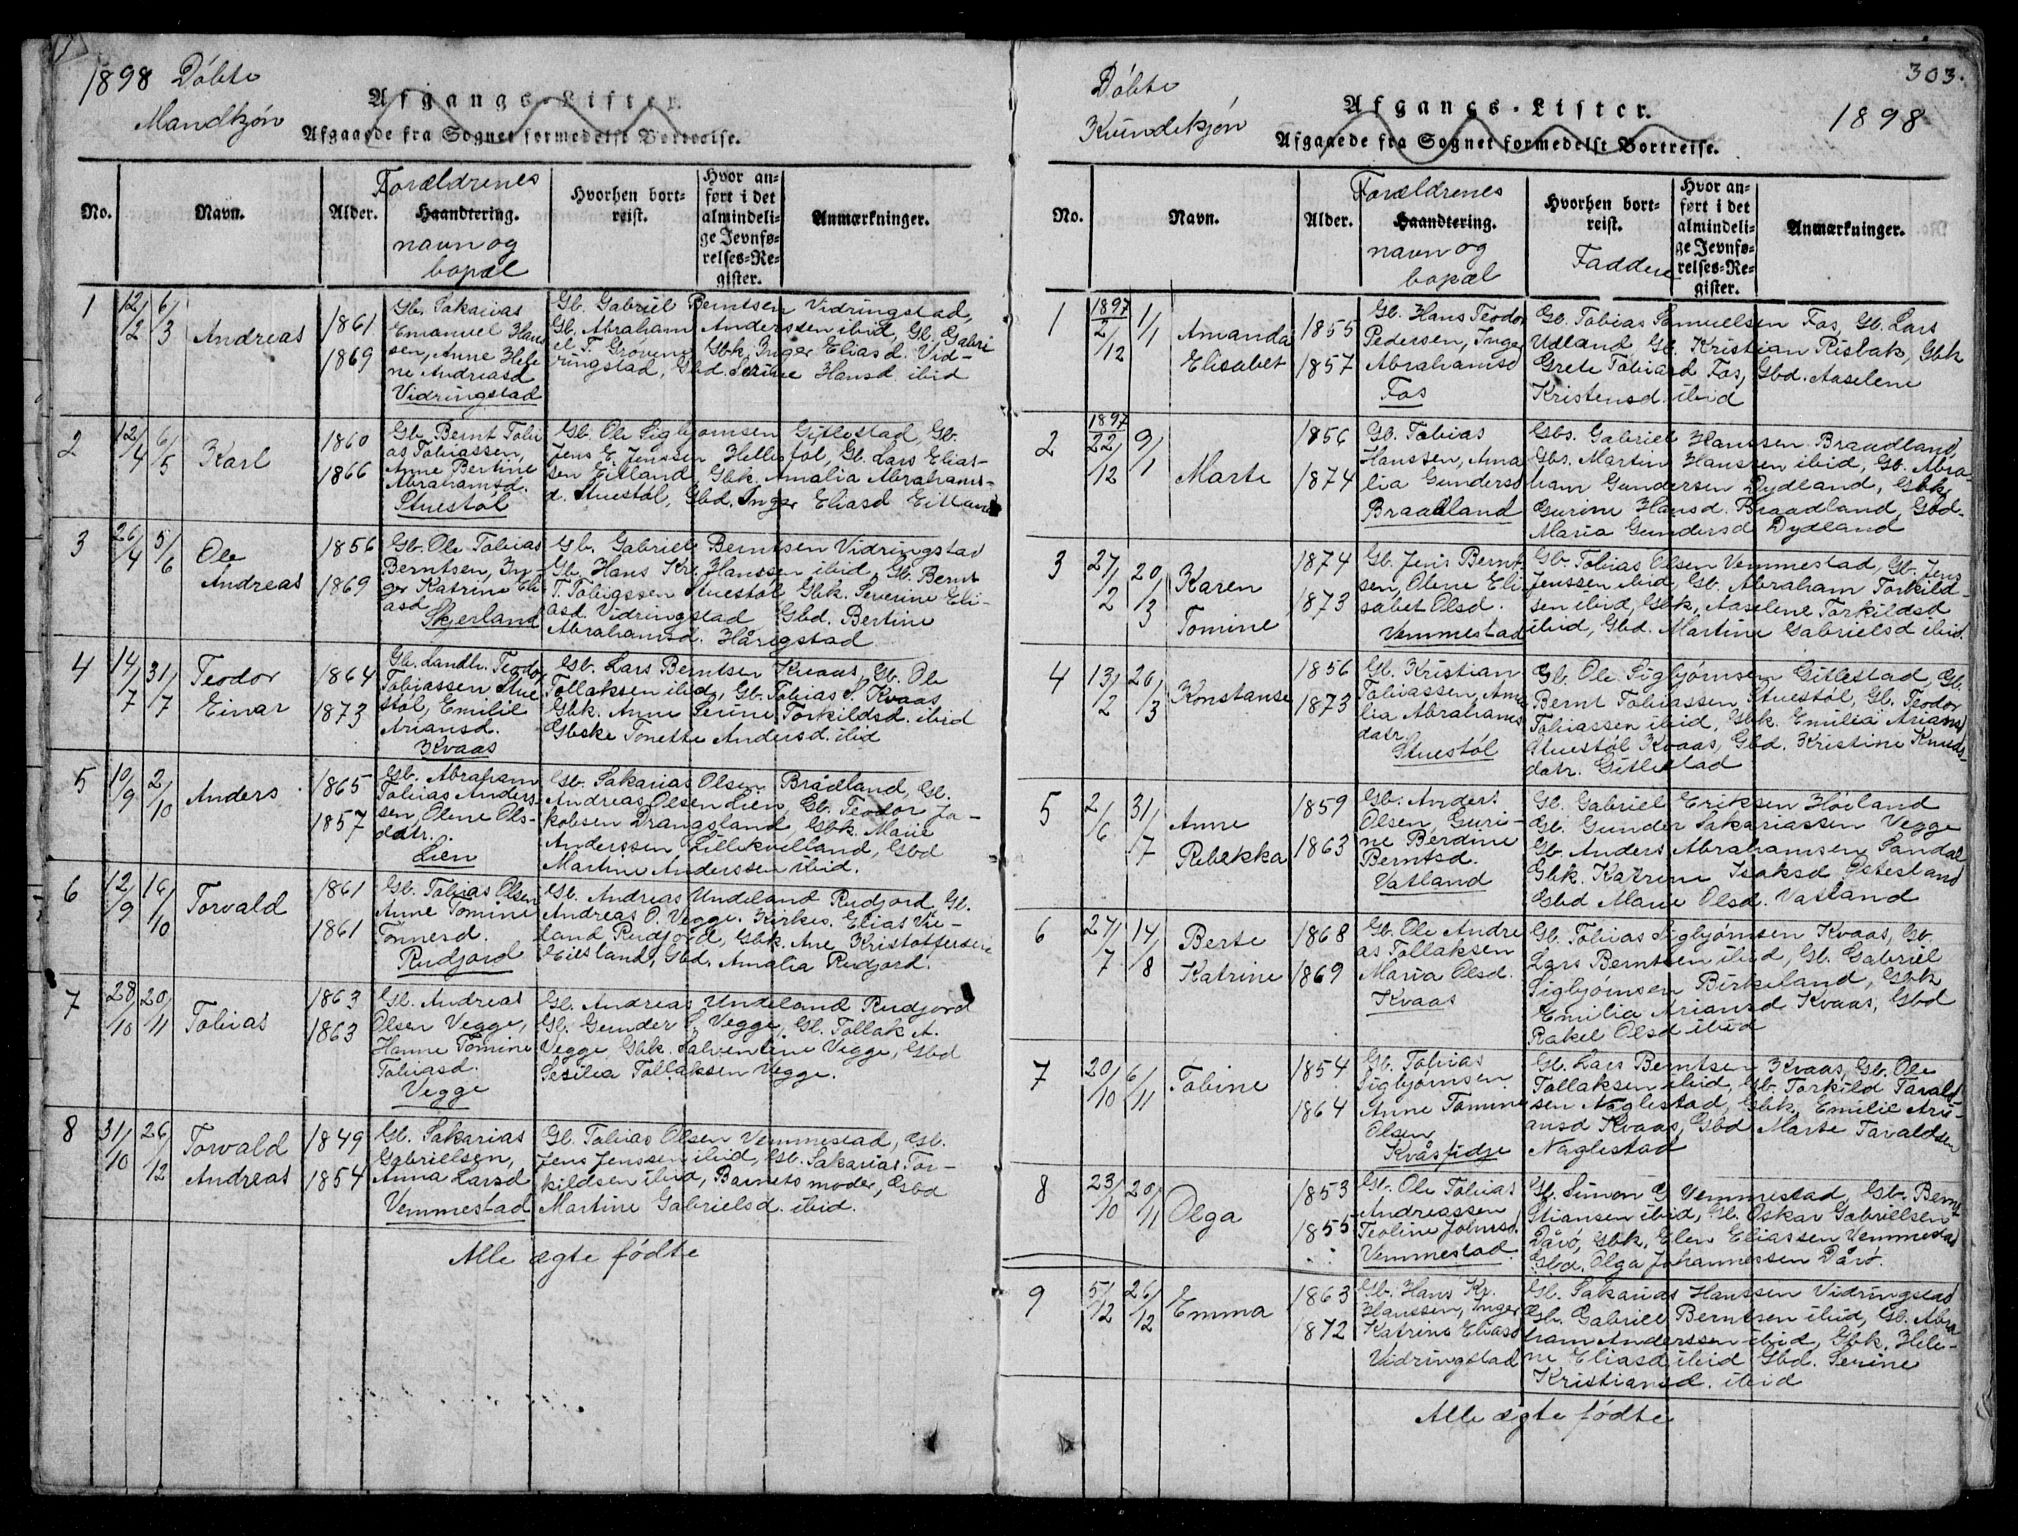 1898 Döbte
Mandkjøn
Afgangs-Lister.
Afgaaede fra Sognet formedelst Bortreise.
No.
Navn.
Alder.
Forældrenes
Haandtering.
navn og
bopæl
Hvorhen bort-
reist.
Hvor an-
ført i det
almindeli-
ge Jevnfø-
relses-Re-
gister.
Anmærkninger.
1
12/2 6/3
Andreas
1861
1869
Gb. Sakarias
Emanuel Hans
sen, Anne Hele
ne Andreasd
Vidringstad
Gb. Gabriel Berntsen Vidringstad,
Gb. Abraham Anderssen ibid, Gb. Gabri
el T. Grøvene, Gbk Inger Eliasd. Vid-
ringstad, Gbd. Serine Hansd ibid
2
12/4 6/5
Karl
1860
1866
Gb. Bernt Tobi
as Tobiassen,
Anne Bertine
Abrahamsd.
Stuestøl
Gb. Ole Sigbjørnsen Gitlestad, Gb.
Jens E. Jenssen Hellesføl, Gb. Lars Elias-
sen Eitland, Gbk. Amalia Abrahams-
d. Stuestøl, Gbd. Inger Eliasd Eitland
3
26/4 5/6
Ole
Andreas
1856
1869
Gb. Ole Tobias
Berntsen, In-
ger Katrine Eli
asd.
Skjerland
Gb. Gabriel Berntsen Vidringstad
Gb. Hans Kr. Hanssen ibid, Gb. Bernt
T. Tobiassen Stuestøl Gbk. Severine Eli-
asd. Vidringstad Gbd. Bertine
Abrahamsd. Hårigstad
4
14/7 31/7
Teodor
Einar
1864
1873
Gb. Landh. Teodor
Tobiassen Stue
støl, Emilie
Ariansd.
Kvaas
Gb. Lars Berntsen Kvaas, Gb. Ole
Tollaksen ibid, Gb. Tobias S. Kvaas
Gbk. Anne Serine Torkildsd. ibid
Gbske Tonette Andersd. ibid
5
10/9 2/10
Anders
1865
1857
Gb. Abraham
Tobias Anders
sen, Olene Ols-
datr.
Lien
Gb. Sakarias Olsen Brådland, Gb.
Andreas Olsen Lien, Gb. Teodor Ja-
kobsen Drangsland, Gbk. Marie
Anderssen Lillekvelland, Gbd
Martine Anderssen ibid.
6
12/9 16/10
Torvald
1861
1861
Gb. Tobias Olsen
Anne Tomine
Tønnesd.
Rudjord
Gb. Andreas Undeland Rudjord Gb.
Andreas O. Vegge. Kirkes. Elias Vie-
land Rudjord, Gbk. Ane Kristoffersen
Eiesland, Gbd. Amalia Rudjord.
7
28/10 20/11
Tobias
1863
1863
Gb. Andreas
Olsen Vegge,
Hanne Tomine
Tobiasd.
Vegge
Gb. Andreas Undeland Rudjord
Gb. Gunder S. Vegge, Gb. Tollak A.
Vegge, Gbk. Salventine Vegge, Gbd
Sesilia Tollaksen Vegge.
8
31/10 26/12
Torvald
Andreas
1849
1854
Gb. Sakarias
Gabrielsen,
Anna Larsd
Vemmestad
Gb. Tobias Olsen Vemmestad, Gb.
Jens Jenssen ibid, Gb. Sakarias Tor-
kildsen ibid, Barnets moder, Gbd
Martine Gabrielsd. ibid.
Alle ægte fødte
303.
Döbte
Kvindekjøn
Afgangs-Lister.
1898
Afgaaede fra Sognet formedelst Bortreise.
No.
Navn.
Alder.
Forældrenes
Haandtering.
navn og
bopæl
Hvorhen bort-
reist.
Faddere
Hvor an-
ført i det
almindeli-
ge Jevnfø-
relses-Re-
gister.
Anmærkninger.
1
1897
2/12 1/1
Amanda
Elisabet
1855
1857
Gb. Hans Teodor
Pedersen, Inger
Abrahamsd
Fos
Gb. Tobias Samuelsen Fos, Gb. Lars
Udland Gb. Kristian Risbak, Gbk
Grete Tobiasd Fos, Gbd. Aaselene
Kristensd. ibid
2
1897
22/12 9/1
Marte
1856
1874
Gb. Tobias
Hanssen, Ama
lia Gundersd
Braadland
Gbs. Gabriel Hanssen Braadland,
Gbs. Martin Hanssen ibid, Gb. Abra-
ham Gundersen Dydland, Gbk
Gurine Hansd. Braadland, Gbd-
Maria Gundersd Dydland
3
27/2 20/3
Karen
Tomine
1874
1873
Gb. Jens Bernt
sen, Olene Eli
sabet Olsd.
Vemmestad
Gb. Tobias Olsen Vemmestad, Gb. Jens
Jenssen ibid, Gb. Abraham Torkild-
sen ibid, Gbk. Aaselene Torkildsd
ibid, Gbd. Martine Gabrielsd ibid.
4
13/2 20/3
Konstanse
1856
1873
Gb. Kristian
Tobiassen, Ama
lia Abrahams
datr.
Stuestøl
Gb. Ole Sigbjørnsen Gitlestad, Gb.
Bernt Tobiassen Stuestøl, Gb. Teodor
Tobiassen ibid, Gbk. Emilia Ariansd
Stuestøl Kvaas, Gbd. Kristine Knuds-
datr. Gitlestad
5
2/6 31/7
Anne
Rebekka
1859
1863
Gb. Anders
Olsen, Guri-
ne Berdine
Berntsd.
Vatland
Gb. Gabriel Eriksen Höiland
Gb. Gunder Sakariassen Vegge
Gb. Anders Abrahamsen Sandal
Gbk. Katrine Isaksd Østesland
Gbd Marie Olsd. Vatland
6
27/7 14/8
Berte
Katrine
1868
1869
Gb. Ole Andre
as Tollaksen
Maria Olsd.
Kvaas
Gb. Tobias Sigbjørnsen Kvaas, Gb.
Lars Berntsen ibid, Gb. Gabriel
Sigbjørnsen Birkeland, Gbk
Emilia Ariansd Kvaas, Gbd
Rakel Olsd ibid
7
20/10 6/11
Tobine
1854
1864
Gb. Tobias
Sigbjørnsen
Anne Tomine
Olsen
Kvåsfidje
Gb. Lars Berntsen Kvaas, Gb. Ole
Tollaksen ibid, Gb. Torkild Tarald-
sen Naglestad, Gbk. Emilie Ari-
ansd Kvaas, Gbd Marte Taraldsen
Naglestad
8
23/10 20/11
Olga
1853
1855
Gb. Ole Tobias
Andreassen
Teoline Johnsd.
Vemmestad.
Gb. Simon G Vemmestad, Gb. Bernt
Stiansen ibid, Gb. Oskar Gabrielsen
Dårø, Gbk. Elen Eliassen Vemmestad
Gbd. Olga Johannessen Dårø.
9
5/12 26/12
Emma
1863
1872
Gb. Hans Kr.
Hanssen, Inger
Katrine Eliasd
Vidringstad
Gb. Sakarias Hanssen Vidringstad
Gb. Gabriel Berntsen ibid, Gb. Abra
ham Anderssen ibid, Gbk. Hele-
ne Eliasd ibid Gbd. Serine
Kristiansd. ibid
Alle ægte fødte